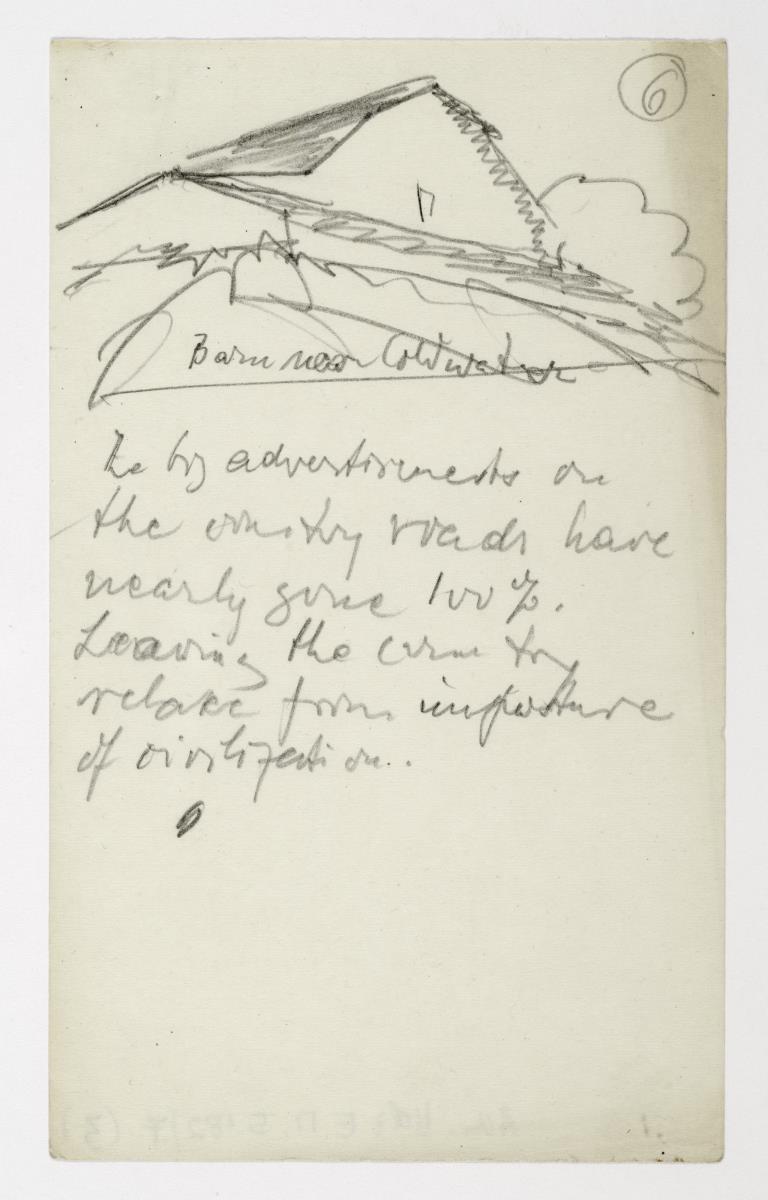 6
Barn near Coldwater
The big advertisements on
the country roads have
nearly gone 100%.
Leaving the country
relaxe from imposture
of civilization.